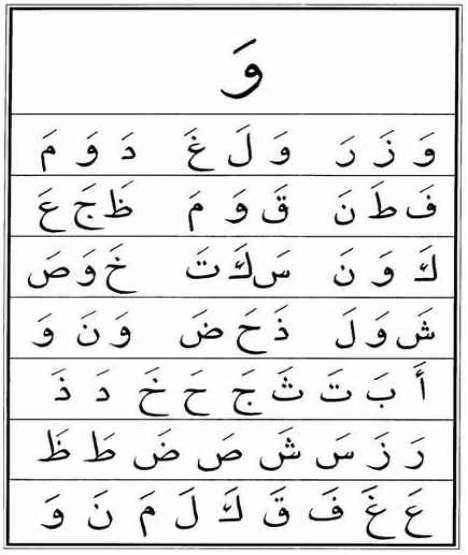 وَ
وَ زَ رَ وَ لَ غَ دَ وَ مَ
فَ طَ نَ قَ وَ مَ ظَ جَ عَ
كَ وَ نَ سَ كَ تَ خَ وَ صَ
شَ وَ لَ ذَ حَ ضَ وَ نَ وَ
أَ بَ تَ ثَ جَ حَ خَ دَ ذَ
رَ زَ سَ شَ صَ ضَ طَ ظَ
عَ غَ فَ قَ كَ لَ مَ نَ وَ